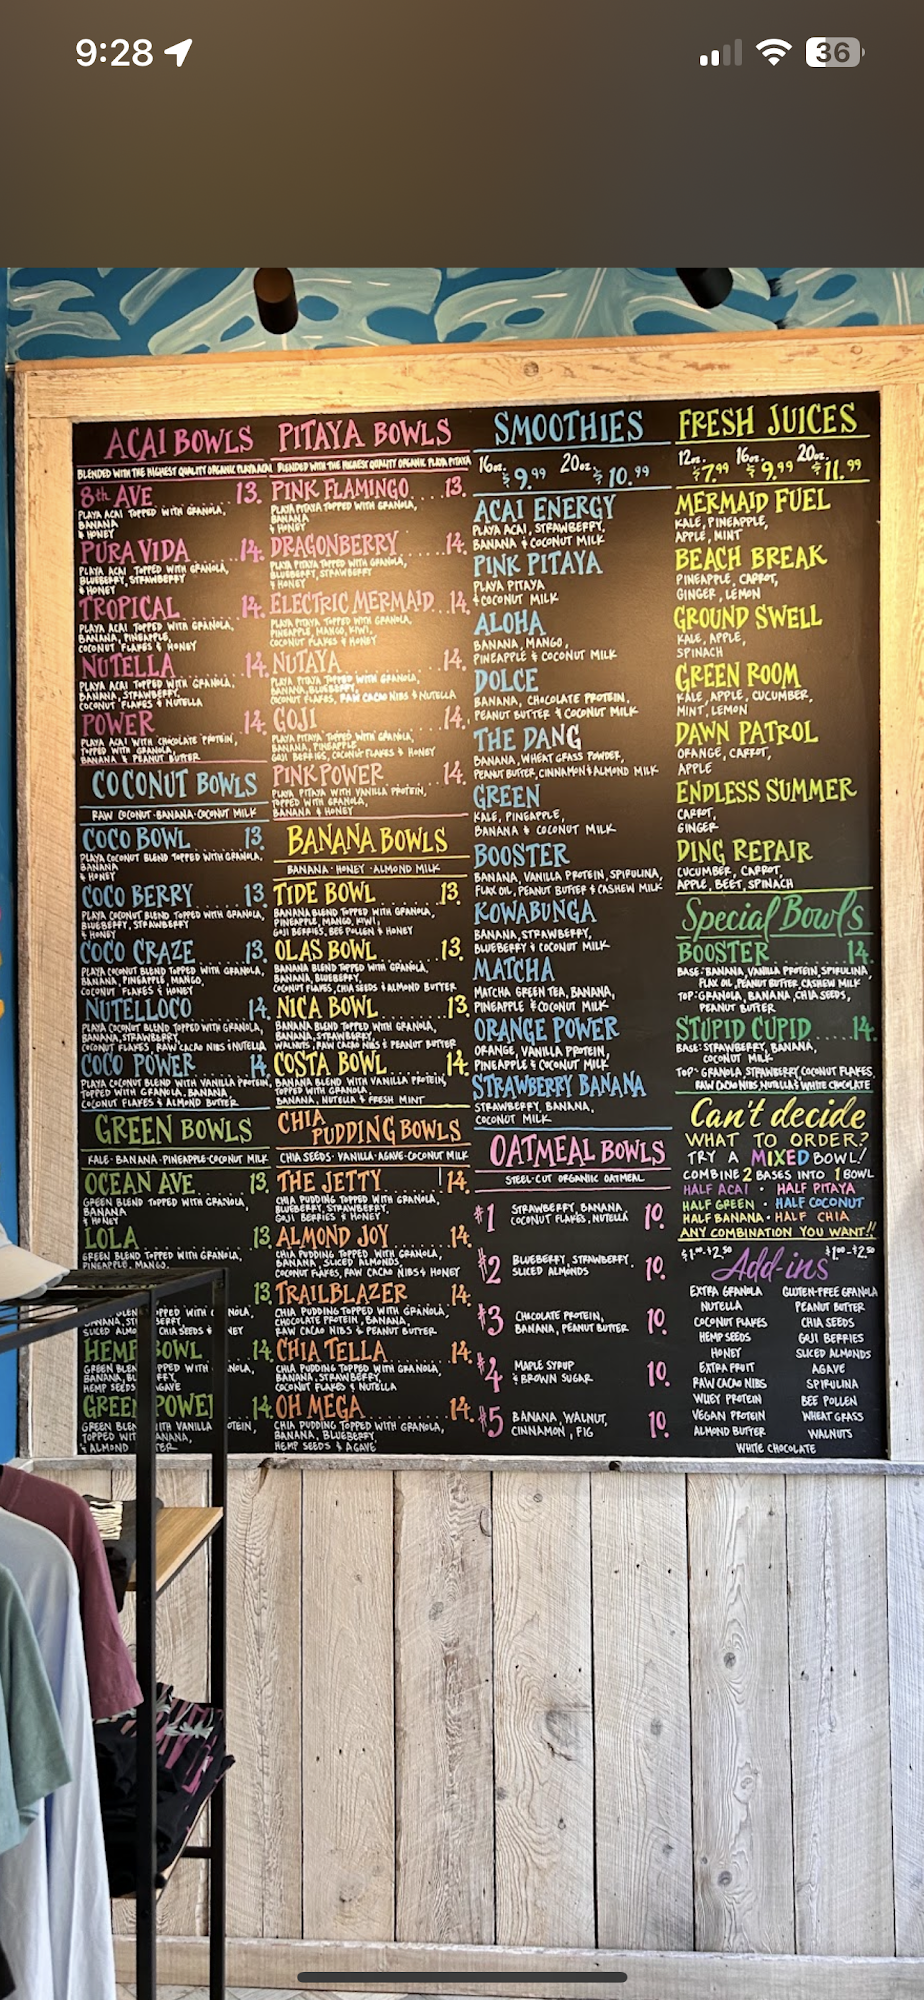 9:28
36
ACAI BOWLS
BLENDED WITH THE HIGHEST QUALITY ORGANIC PLAYA ACAI
8th AVE 13.
PLAYA ACAI TOPPED WITH GRANOLA,
BANANA
& HONEY
PURA VIDA 14.
PLAYA ACAI TOPPED WITH GRANOLA,
BLUEBERRY, STRAWBERRY
& HONEY
TROPICAL 14.
PLAYA ACAI TOPPED WITH GRANOLA,
BANANA, PINEAPPLE,
COCONUT FLAKES & HONEY
NUTELLA 14.
PLAYA ACAI TOPPED WITH GRANOLA,
BANANA, STRAWBERRY,
COCONUT FLAKES & NUTELLA
POWER 14.
PLAYA ACAI WITH CHOCOLATE PROTEIN,
TOPPED WITH GRANOLA,
BANANA & PEANUT BUTTER
COCONUT BOWLS
RAW COCONUT·BANANA·COCONUT MILK
COCO BOWL 13.
PLAYA COCONUT BLEND TOPPED WITH GRANOLA,
BANANA
& HONEY
COCO BERRY 13.
PLAYA COCONUT BLEND TOPPED WITH GRANOLA,
BLUEBERRY, STRAWBERRY
& HONEY
COCO CRAZE 13.
PLAYA COCONUT BLEND TOPPED WITH GRANOLA,
BANANA, PINEAPPLE, MANGO,
COCONUT FLAKES & HONEY
NUTELLOCO 14.
PLAYA COCONUT BLEND TOPPED WITH GRANOLA,
BANANA, STRAWBERRY,
COCONUT FLAKES RAW CACAO NIBS & NUTELLA
COCO POWER 14.
PLAYA COCONUT BLEND WITH VANILLA PROTEIN,
TOPPED WITH GRANOLA, BANANA,
COCONUT FLAKES & ALMOND BUTTER
GREEN BOWLS
KALE·BANANA·PINEAPPLE·COCONUT MILK
OCEAN AVE 13.
GREEN BLEND TOPPED WITH GRANOLA,
BANANA
& HONEY
LOLA 13
GREEN BLEND TOPPED WITH GRANOLA,
PINEAPPLE, MANGO,
13
SLICED CHIA SEEDS &
HEMP BOWL 14.
HEMP SEEDS
GREEN POWER 14.
WITH VANILLA
PITAYA BOWLS
BLENDED WITH THE HIGHEST QUALITY ORGANIC PLAYA PITAYA
PINK FLAMINGO 13.
PLAYA PITAYA TOPPED WITH GRANOLA,
BANANA
& HONEY
DRAGONBERRY 14.
PLAYA PITAYA TOPPED WITH GRANOLA,
BLUEBERRY, STRAWBERRY
& HONEY
ELECTRIC MERMAID 14.
PLAYA PITAYA TOPPED WITH GRANOLA,
PINEAPPLE, MANGO, KIWI,
COCONUT FLAKES & HONEY
NUTAYA 14.
PLAYA PITAYA TOPPED WITH GRANOLA,
BANANA, BLUEBERRY,
COCONUT FLAKES, RAW CACAO NIBS & NUTELLA
GOJI 14.
PLAYA PITAYA TOPPED WITH GRANOLA,
BANANA, PINEAPPLE
GOJI BERRIES, COCONUT FLAKES & HONEY
PINK POWER 14.
PLAYA PITAYA WITH VANILLA PROTEIN,
TOPPED WITH GRANOLA,
BANANA & HONEY
BANANA BOWLS
BANANA·HONEY·ALMOND MILK
TIDE BOWL 13.
BANANA BLEND TOPPED WITH GRANOLA,
PINEAPPLE, MANGO, KIWI,
GOJI BERRIES, BEE POLLEN & HONEY
OLAS BOWL 13.
BANANA BLEND TOPPED WITH GRANOLA,
BANANA, BLUEBERRY,
COCONUT FLAKES, CHIA SEEDS & ALMOND BUTTER
NICA BOWL 13.
BANANA BLEND TOPPED WITH GRANOLA,
BANANA, STRAWBERRY,
WALNUTS, RAW CACAO NIBS & PEANUT BUTTER
COSTA BOWL 14.
BANANA BLEND WITH VANILLA PROTEIN,
TOPPED WITH GRANOLA
BANANA, NUTELLA & FRESH MINT
CHIA PUDDING BOWLS
CHIA SEEDS·VANILLA·AGAVE·COCONUT MILK
THE JETTY 14.
CHIA PUDDING TOPPED WITH GRANOLA,
BLUEBERRY, STRAWBERRY,
GOJI BERRIES & HONEY
ALMOND JOY 14.
CHIA PUDDING TOPPED WITH GRANOLA,
BANANA, SLICED ALMONDS,
COCONUT FLAKES, RAW CACAO NIBS & HONEY
TRAILBLAZER 14.
CHIA PUDDING TOPPED WITH GRANOLA,
CHOCOLATE PROTEIN, BANANA,
RAW CACAO NIBS & PEANUT BUTTER
CHIA TELLA 14.
CHIA PUDDING TOPPED WITH GRANOLA,
BANANA, STRAWBERRY,
COCONUT FLAKES & NUTELLA
OH MEGA 14.
CHIA PUDDING TOPPED WITH GRANOLA,
BANANA, BLUEBERRY,
HEMP SEEDS & AGAVE
SMOOTHIES
16oz. $9.99 20oz. $10.99
ACAI ENERGY
PLAYA ACAI, STRAWBERRY,
BANANA & COCONUT MILK
PINK PITAYA
PLAYA PITAYA
& COCONUT MILK
ALOHA
BANANA, MANGO,
PINEAPPLE & COCONUT MILK
DOLCE
BANANA, CHOCOLATE PROTEIN,
PEANUT BUTTER & COCONUT MILK
THE DANG
BANANA, WHEAT GRASS POWDER,
PEANUT BUTTER, CINNAMON & ALMOND MILK
GREEN
KALE, PINEAPPLE,
BANANA & COCONUT MILK
BOOSTER
BANANA, VANILLA PROTEIN, SPIRULINA,
FLAX OIL, PEANUT BUTTER & CASHEW MILK
KOWABUNGA
BANANA, STRAWBERRY,
BLUEBERRY & COCONUT MILK
MATCHA
MATCHA GREEN TEA, BANANA,
PINEAPPLE & COCONUT MILK
ORANGE POWER
ORANGE, VANILLA PROTEIN,
PINEAPPLE & COCONUT MILK
STRAWBERRY BANANA
STRAWBERRY, BANANA,
COCONUT MILK
OATMEAL BOWLS
STEEL-CUT ORGANIC OATMEAL
#1 STRAWBERRY, BANANA, 10.
COCONUT FLAKES, NUTELLA
#2 BLUEBERRY, STRAWBERRY, 10.
SLICED ALMONDS
#3 CHOCOLATE PROTEIN, 10.
BANANA, PEANUT BUTTER
#4 MAPLE SYRUP 10.
& BROWN SUGAR
#5 BANANA, WALNUT, 10.
CINNAMON, FIG
FRESH JUICES
12oz. $7.99 16oz. $9.99 20oz. $11.99
MERMAID FUEL
KALE, PINEAPPLE,
APPLE, MINT
BEACH BREAK
PINEAPPLE, CARROT,
GINGER, LEMON
GROUND SWELL
KALE, APPLE,
SPINACH
GREEN ROOM
KALE, APPLE, CUCUMBER,
MINT, LEMON
DAWN PATROL
ORANGE, CARROT,
APPLE
ENDLESS SUMMER
CARROT,
GINGER
DING REPAIR
CUCUMBER, CARROT,
APPLE, BEET, SPINACH
Special Bowls
BOOSTER 14.
BASE: BANANA, VANILLA PROTEIN, SPIRULINA,
FLAX OIL, PEANUT BUTTER CASHEW MILK
TOP: GRANOLA, BANANA, CHIA SEEDS,
PEANUT BUTTER
STUPID CUPID 14.
BASE: STRAWBERRY, BANANA,
COCONUT MILK
TOP: GRANOLA STRAWBERRY, COCONUT FLAKES,
RAW CACAO NIBS, NUTELLA & WHITE CHOCOLATE
Can't decide
WHAT TO ORDER?
TRY A MIXED BOWL!
COMBINE 2 BASES INTO 1 BOWL
HALF ACAI · HALF PITAYA
HALF GREEN · HALF COCONUT
HALF BANANA · HALF CHIA
ANY COMBINATION YOU WANT!!
$1.00-$2.50 Add-ins $1.00-$2.50
EXTRA GRANOLA GLUTEN-FREE GRANOLA
NUTELLA PEANUT BUTTER
COCONUT FLAKES CHIA SEEDS
HEMP SEEDS GOJI BERRIES
HONEY SLICED ALMONDS
EXTRA FRUIT AGAVE
RAW CACAO NIBS SPIRULINA
WHEY PROTEIN BEE POLLEN
VEGAN PROTEIN WHEAT GRASS
ALMOND BUTTER WALNUTS
WHITE CHOCOLATE